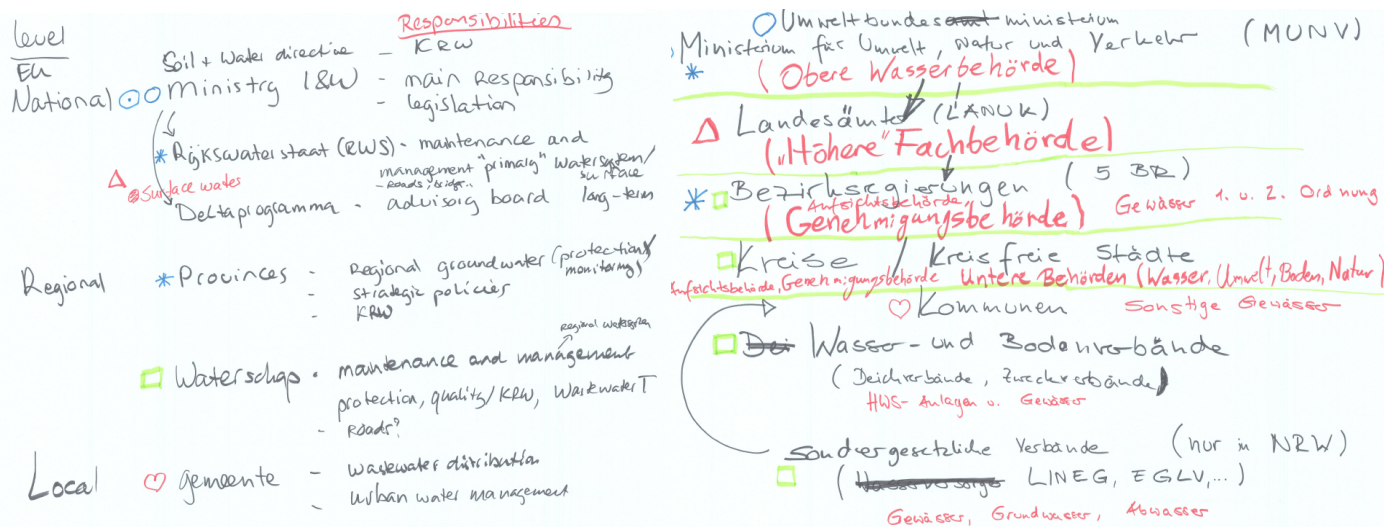 level
Responsibilities
EU
Soil + Water directive - KRW
National
Ministry I&W - main Responsibility
- legislation
Rijkswaterstaat (RWS) - maintenance and
management "primary" watersystem/
surface
Surface water
Deltaprogramma - advisory board long-term
Regional
Provinces - Regional groundwater (protection/
monitoring)
- strategic policies
- KRW
regional watersystem
Waterschap - maintenance and management
protection, quality/KRW, WastewaterT
- Roads?
Local
gemeente - wastewater distribution
- urban water management
Umweltbundesamt ministerium
Ministerium für Umwelt, Natur und Verkehr (MUNV)
(Obere Wasserbehörde)
Landesämter (LANUK)
("Höhere" Fachbehörde)
Bezirksregierungen (5 BR)
Aufsichtsbehörde,
(Genehmigungsbehörde) Gewässer 1. u. 2. Ordnung
Kreise / Kreisfreie Städte
Aufsichtsbehörde, Genehmigungsbehörde Untere Behörden (Wasser, Umwelt, Boden, Natur)
Kommunen Sonstige Gewässer
Wasser- und Bodenverbände
(Deichverbände, Zweckverbände)
HWS-Anlagen u. Gewässer
sondergesetzliche Verbände (nur in NRW)
(Wasserversorger LINEG, EGLV,...)
Gewässer, Grundwasser, Abwasser